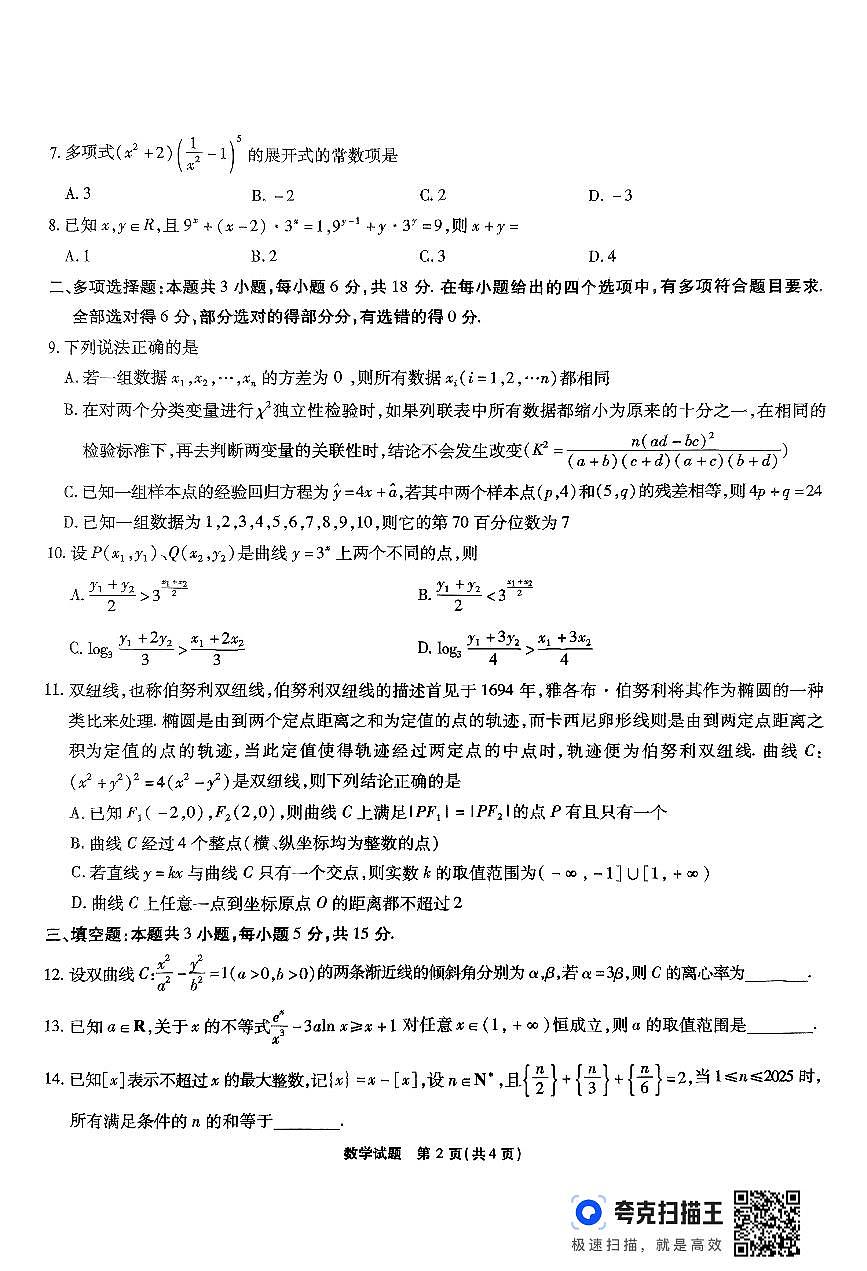 7. 多项式(x²+2)(1/x²-1)⁵的展开式的常数项是
A. 3 B. -2 C. 2 D. -3
8. 已知 x,y∈R,且 9ˣ+(x-2)·3ˣ=1,9ʸ⁻¹+y·3ʸ=9,则 x+y=
A. 1 B. 2 C. 3 D. 4
二、多项选择题:本题共 3 小题,每小题 6 分,共 18 分. 在每小题给出的四个选项中,有多项符合题目要求.
全部选对得 6 分,部分选对的得部分分,有选错的得 0 分.
9. 下列说法正确的是
A. 若一组数据 x₁,x₂,…,xₙ 的方差为 0 ,则所有数据 xᵢ(i=1,2,…n)都相同
B. 在对两个分类变量进行χ²独立性检验时,如果列联表中所有数据都缩小为原来的十分之一,在相同的
检验标准下,再去判断两变量的关联性时,结论不会发生改变(K²=n(ad-bc)²/((a+b)(c+d)(a+c)(b+d)))
C. 已知一组样本点的经验回归方程为 ŷ=4x+â,若其中两个样本点(p,4)和(5,q)的残差相等,则 4p+q=24
D. 已知一组数据为 1,2,3,4,5,6,7,8,9,10,则它的第 70 百分位数为 7
10. 设 P(x₁,y₁)、Q(x₂,y₂)是曲线 y=3ˣ 上两个不同的点,则
A. (y₁+y₂)/2>3^((x₁+x₂)/2) B. (y₁+y₂)/2<3^((x₁+x₂)/2)
C. log₃ (y₁+2y₂)/3>(x₁+2x₂)/3 D. log₃ (y₁+3y₂)/4>(x₁+3x₂)/4
11. 双纽线,也称伯努利双纽线,伯努利双纽线的描述首见于 1694 年,雅各布·伯努利将其作为椭圆的一种
类比来处理. 椭圆是由到两个定点距离之和为定值的点的轨迹,而卡西尼卵形线则是由到两定点距离之
积为定值的点的轨迹,当此定值使得轨迹经过两定点的中点时,轨迹便为伯努利双纽线. 曲线 C:
(x²+y²)²=4(x²-y²)是双纽线,则下列结论正确的是
A. 已知 F₁(-2,0),F₂(2,0),则曲线 C 上满足|PF₁|=|PF₂|的点 P 有且只有一个
B. 曲线 C 经过 4 个整点(横、纵坐标均为整数的点)
C. 若直线 y=kx 与曲线 C 只有一个交点,则实数 k 的取值范围为(-∞,-1]∪[1,+∞)
D. 曲线 C 上任意一点到坐标原点 O 的距离都不超过 2
三、填空题:本题共 3 小题,每小题 5 分,共 15 分.
12. 设双曲线 C:x²/a²-y²/b²=1(a>0,b>0)的两条渐近线的倾斜角分别为 α,β,若 α=3β,则 C 的离心率为______.
13. 已知 a∈R,关于 x 的不等式 eˣ/x³-3aln x≥x+1 对任意 x∈(1,+∞)恒成立,则 a 的取值范围是______.
14. 已知[x]表示不超过 x 的最大整数,记{x}=x-[x],设 n∈N*,且{n/2}+{n/3}+{n/6}=2,当 1≤n≤2025 时,
所有满足条件的 n 的和等于______.
数学试题 第 2 页(共 4 页)
夸克扫描王
极速扫描,就是高效